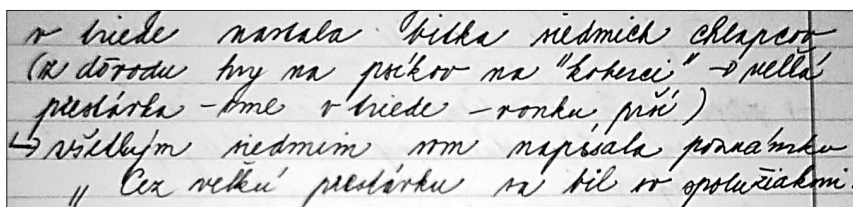 v triede nastala bitka siedmich chlapcov
(z dôvodu hry na psíkov na "koberci" → veľká
prestávka - sme v triede - vonku prší)
↳ všetkým siedmim som napísala poznámku
„ Cez veľkú prestávku sa bil so spolužiakmi.